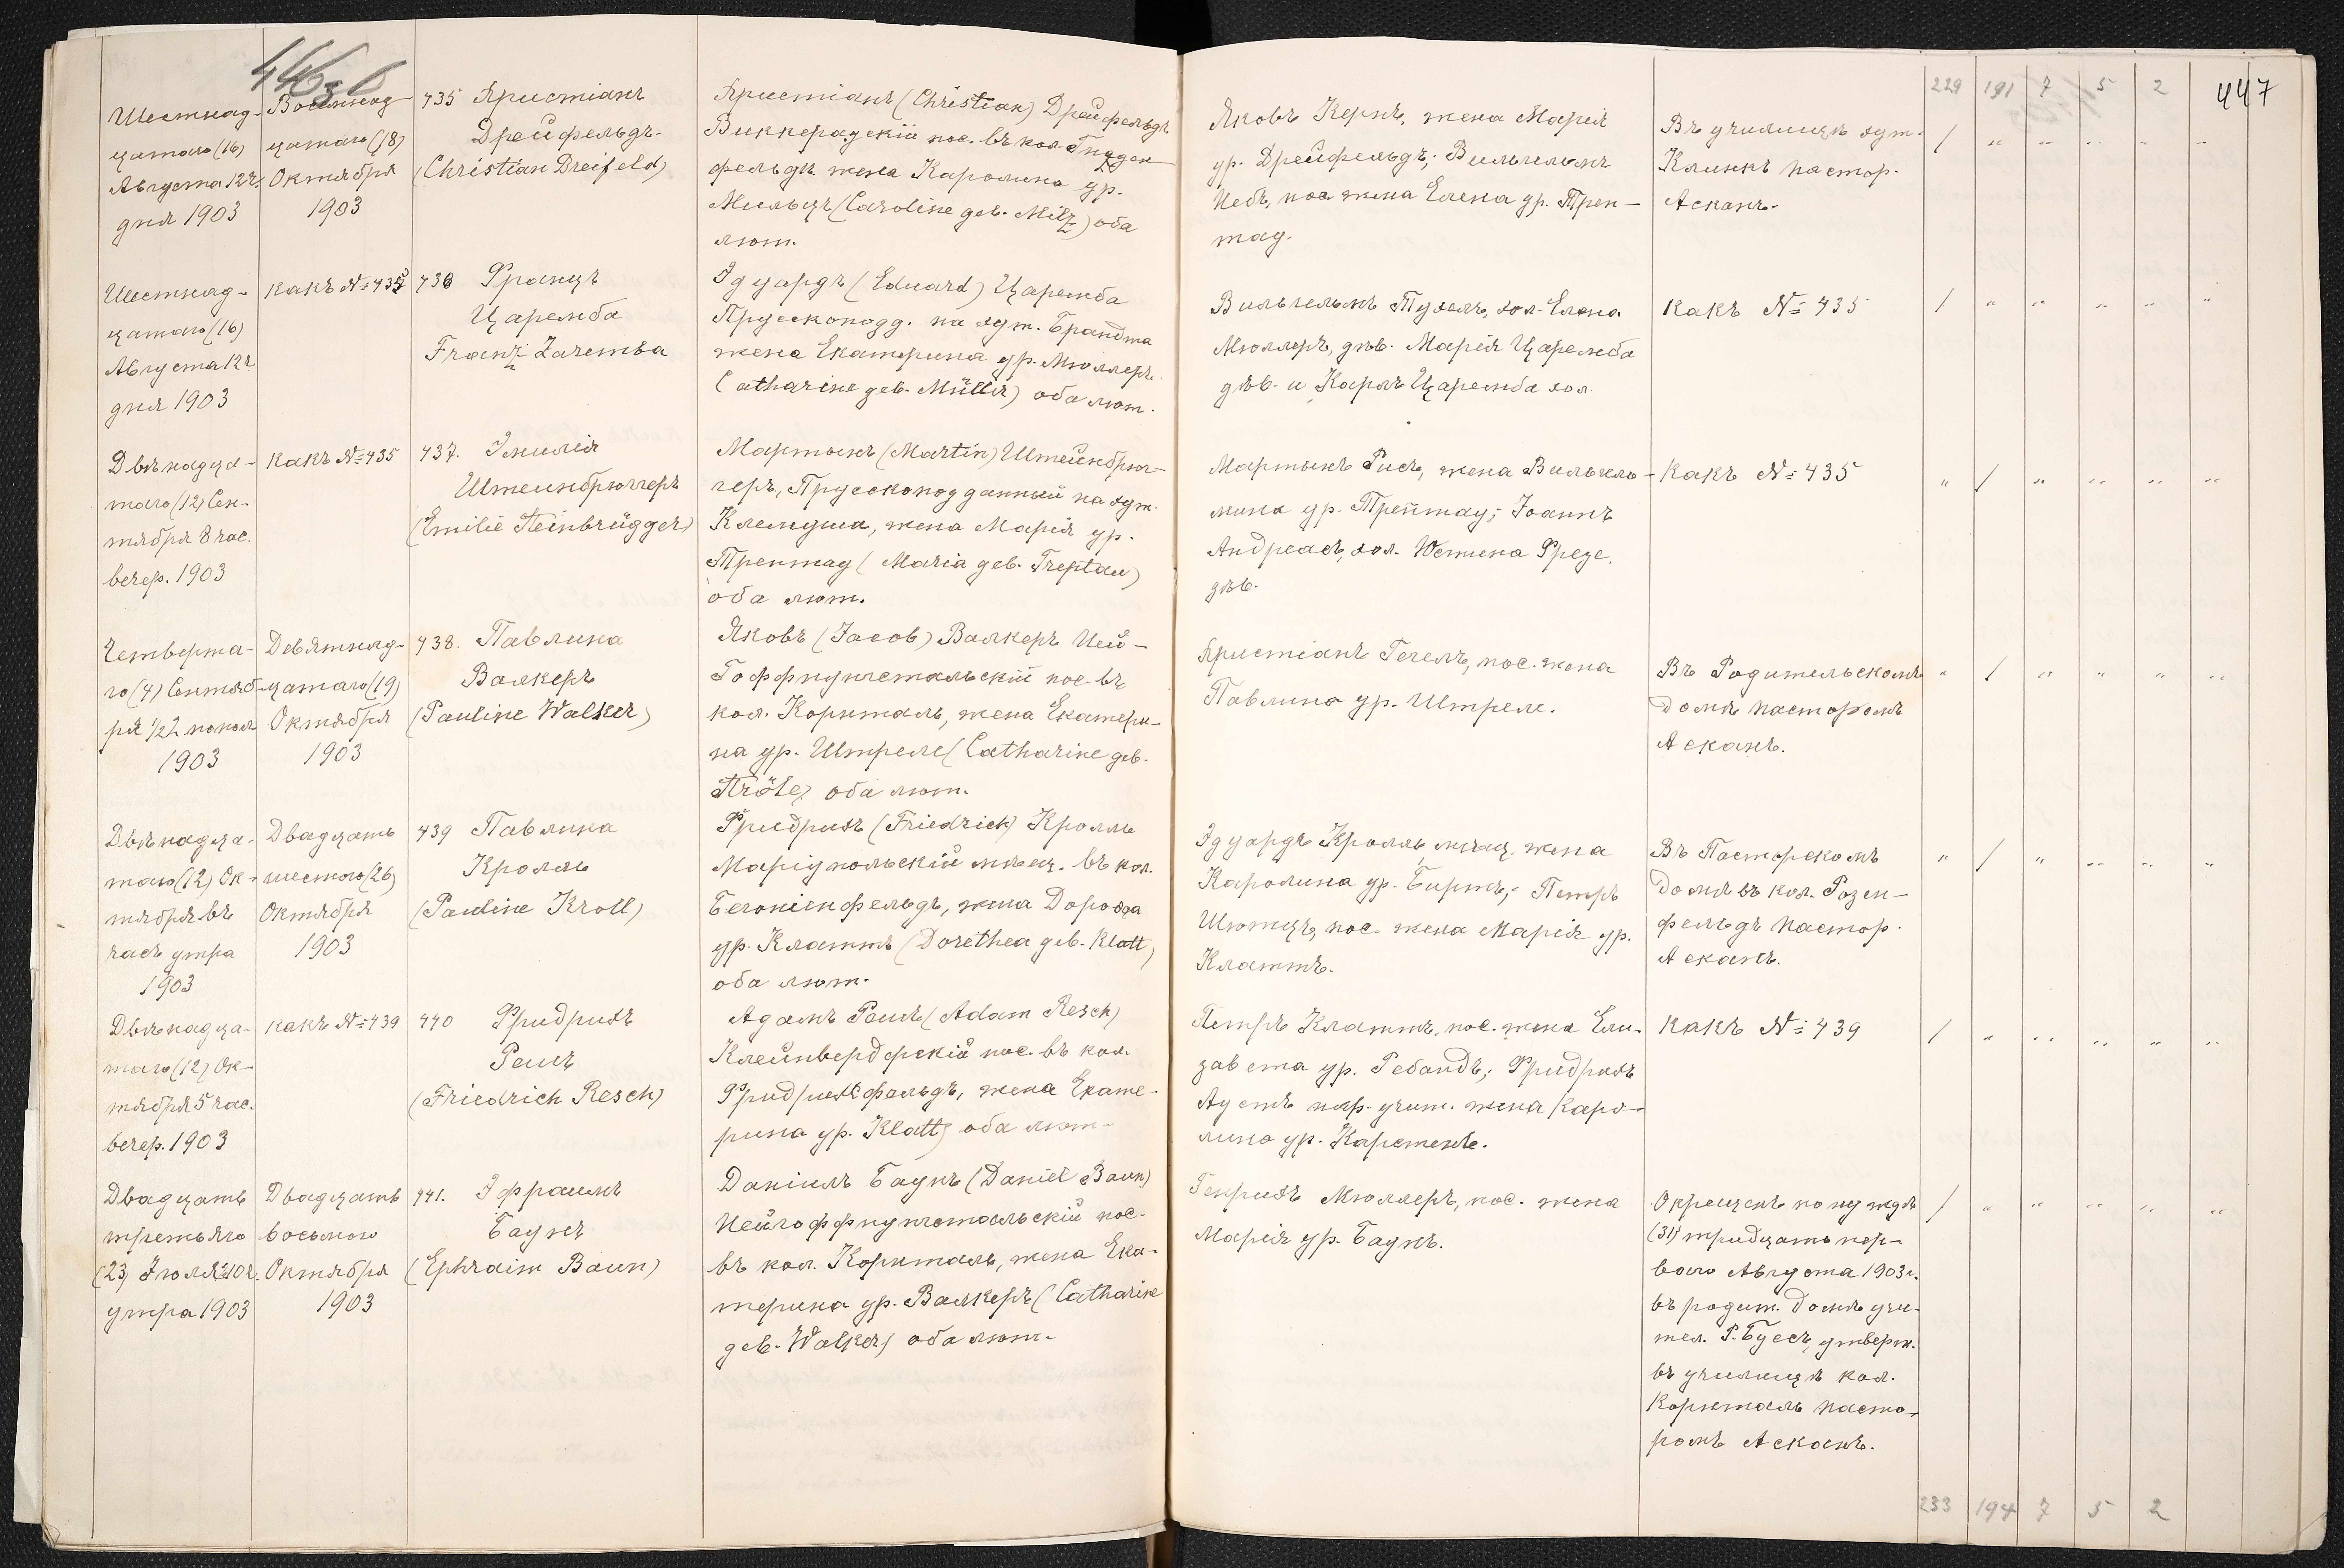 446 об
447
229 191 7 5 2
Шестнад-
цатаго (16)
Августа 12 ч.
дня 1903
Восемнад-
цатаго (18)
Октября
1903
435 Христіанъ
Дрейфельдъ
(Christian Dreifeld)
Христіанъ (Christian) Дрейфельдъ
Виккерауский пос. въ кол. Гнаден-
фельдъ жена Каролина ур.
Мильцъ (Caroline geb. Milz) оба
лют.
Яковъ Кернъ, жена Марія
ур. Дрейфельдъ; Вильгельмъ
пос. жена Елена ур. Треп-
тау.
Въ училищѣ хут.
Клинкъ пастор.
Асканъ.
/ " " " " "
Шестнад-
цатаго (16)
Августа 12 ч
дня 1903
какъ № 435
436 Францъ
Царемба
Franz Zaremba
Эдуардъ (Eduard) Царемба
Прусскоподд. на хут. Брандта
жена Екатерина ур. Мюллеръ
(Catharine geb. Müller) оба лют.
Вильгельмъ хол. Елена
Мюллеръ, дѣв. Марія Царемба
дѣв. и Карлъ Царемба хол.
какъ № 435
/ " " " " "
Двѣнадца-
таго (12) Сен-
тября 8 час.
вечер. 1903
какъ № 435
437. Эмилія
Штейнбрюггеръ
(Emilie Steinbrügger)
Мартынъ (Martin) Штейнбрюг-
геръ, Прусскоподданный на хут.
жена Марія ур.
Трептау (Maria geb. Treptau)
оба лют.
Мартынъ Рисъ, жена Вильгель-
мина ур. Трептау; Іоаннъ
Андреасъ, хол. Фрезе,
дѣв.
какъ № 435
" / " " " "
Четверта-
го (4) Сентяб-
ря ½ 2 попол
1903
Девятнад-
цатаго (19)
Октября
1903
438. Павлина
Валкеръ
(Pauline Walker)
Яковъ (Jacob) Валкеръ Ней-
Гоффнунгстальскій пос. въ
кол. Корнталь, жена Екатери-
на ур. Штреле (Catharine geb.
Ströle) оба лют.
Христіанъ Гегелъ, пос. жена
Павлина ур. Штреле.
Въ Родительскомъ
домѣ пасторомъ
Асканъ.
" / " " " "
Двѣнадца-
таго (12) Ок-
тября въ
часъ утра
1903
Двадцать
шестого (26)
Октября
1903
439 Павлина
Кролль
(Pauline Kroll)
Фридрихъ (Friedrich) Кролль
Маріупольскій мѣщ. въ кол.
Бегонінфельдъ, жена Дороѳеа
ур. Клаттъ (Dorethea geb. Klatt)
оба лют.
Эдуардъ Кролль, мѣщ. жена
Каролина ур. Биртъ; Петръ
Шютцъ, пос. жена Марія ур.
Клаттъ.
Въ Пасторскомъ
домѣ въ кол. Розен-
фельдъ пастор.
Асканъ.
" / " " " "
Двѣнадца-
таго (12) Ок-
тября 5 час.
вечер. 1903
какъ № 439
440 Фридрихъ
Решъ
(Friedrich Resch)
Адамъ Решъ (Adam Resch)
Клейнвердерскій пос. въ кол.
Фридрихсфельдъ, жена Екате-
рина ур. Klatt) оба лют.
Петръ Клаттъ, пос. жена Ели-
завета ур. Гебандъ; Фридрихъ
Аустъ нар. учит. жена Каро-
лина ур. Карстенъ.
какъ № 439
/ " " " " "
Двадцать
третьяго
(23) Іюля 10 ч.
утра 1903
Двадцать
восьмого
Октября
1903
441. Эфраимъ
Баунъ
(Ephraim Baun)
Даніилъ Баунъ (Daniel Baun)
Нейгоффнунгстальскій пос.
въ кол. Корнталь, жена Ека-
терина ур. Валкеръ (Catharine
geb. Walker) оба лют.
Генрихъ Мюллеръ, пос. жена
Марія ур. Баунъ.
Окрещенъ по нуждѣ
(31) тридцать пер-
ваго Августа 1903 г.
въ родит. домѣ учи-
тел. Р. Буесъ, утверж.
въ училищѣ кол.
Корнталь пасто-
ромъ Асканъ.
/ " " " "
233 194 7 5 2